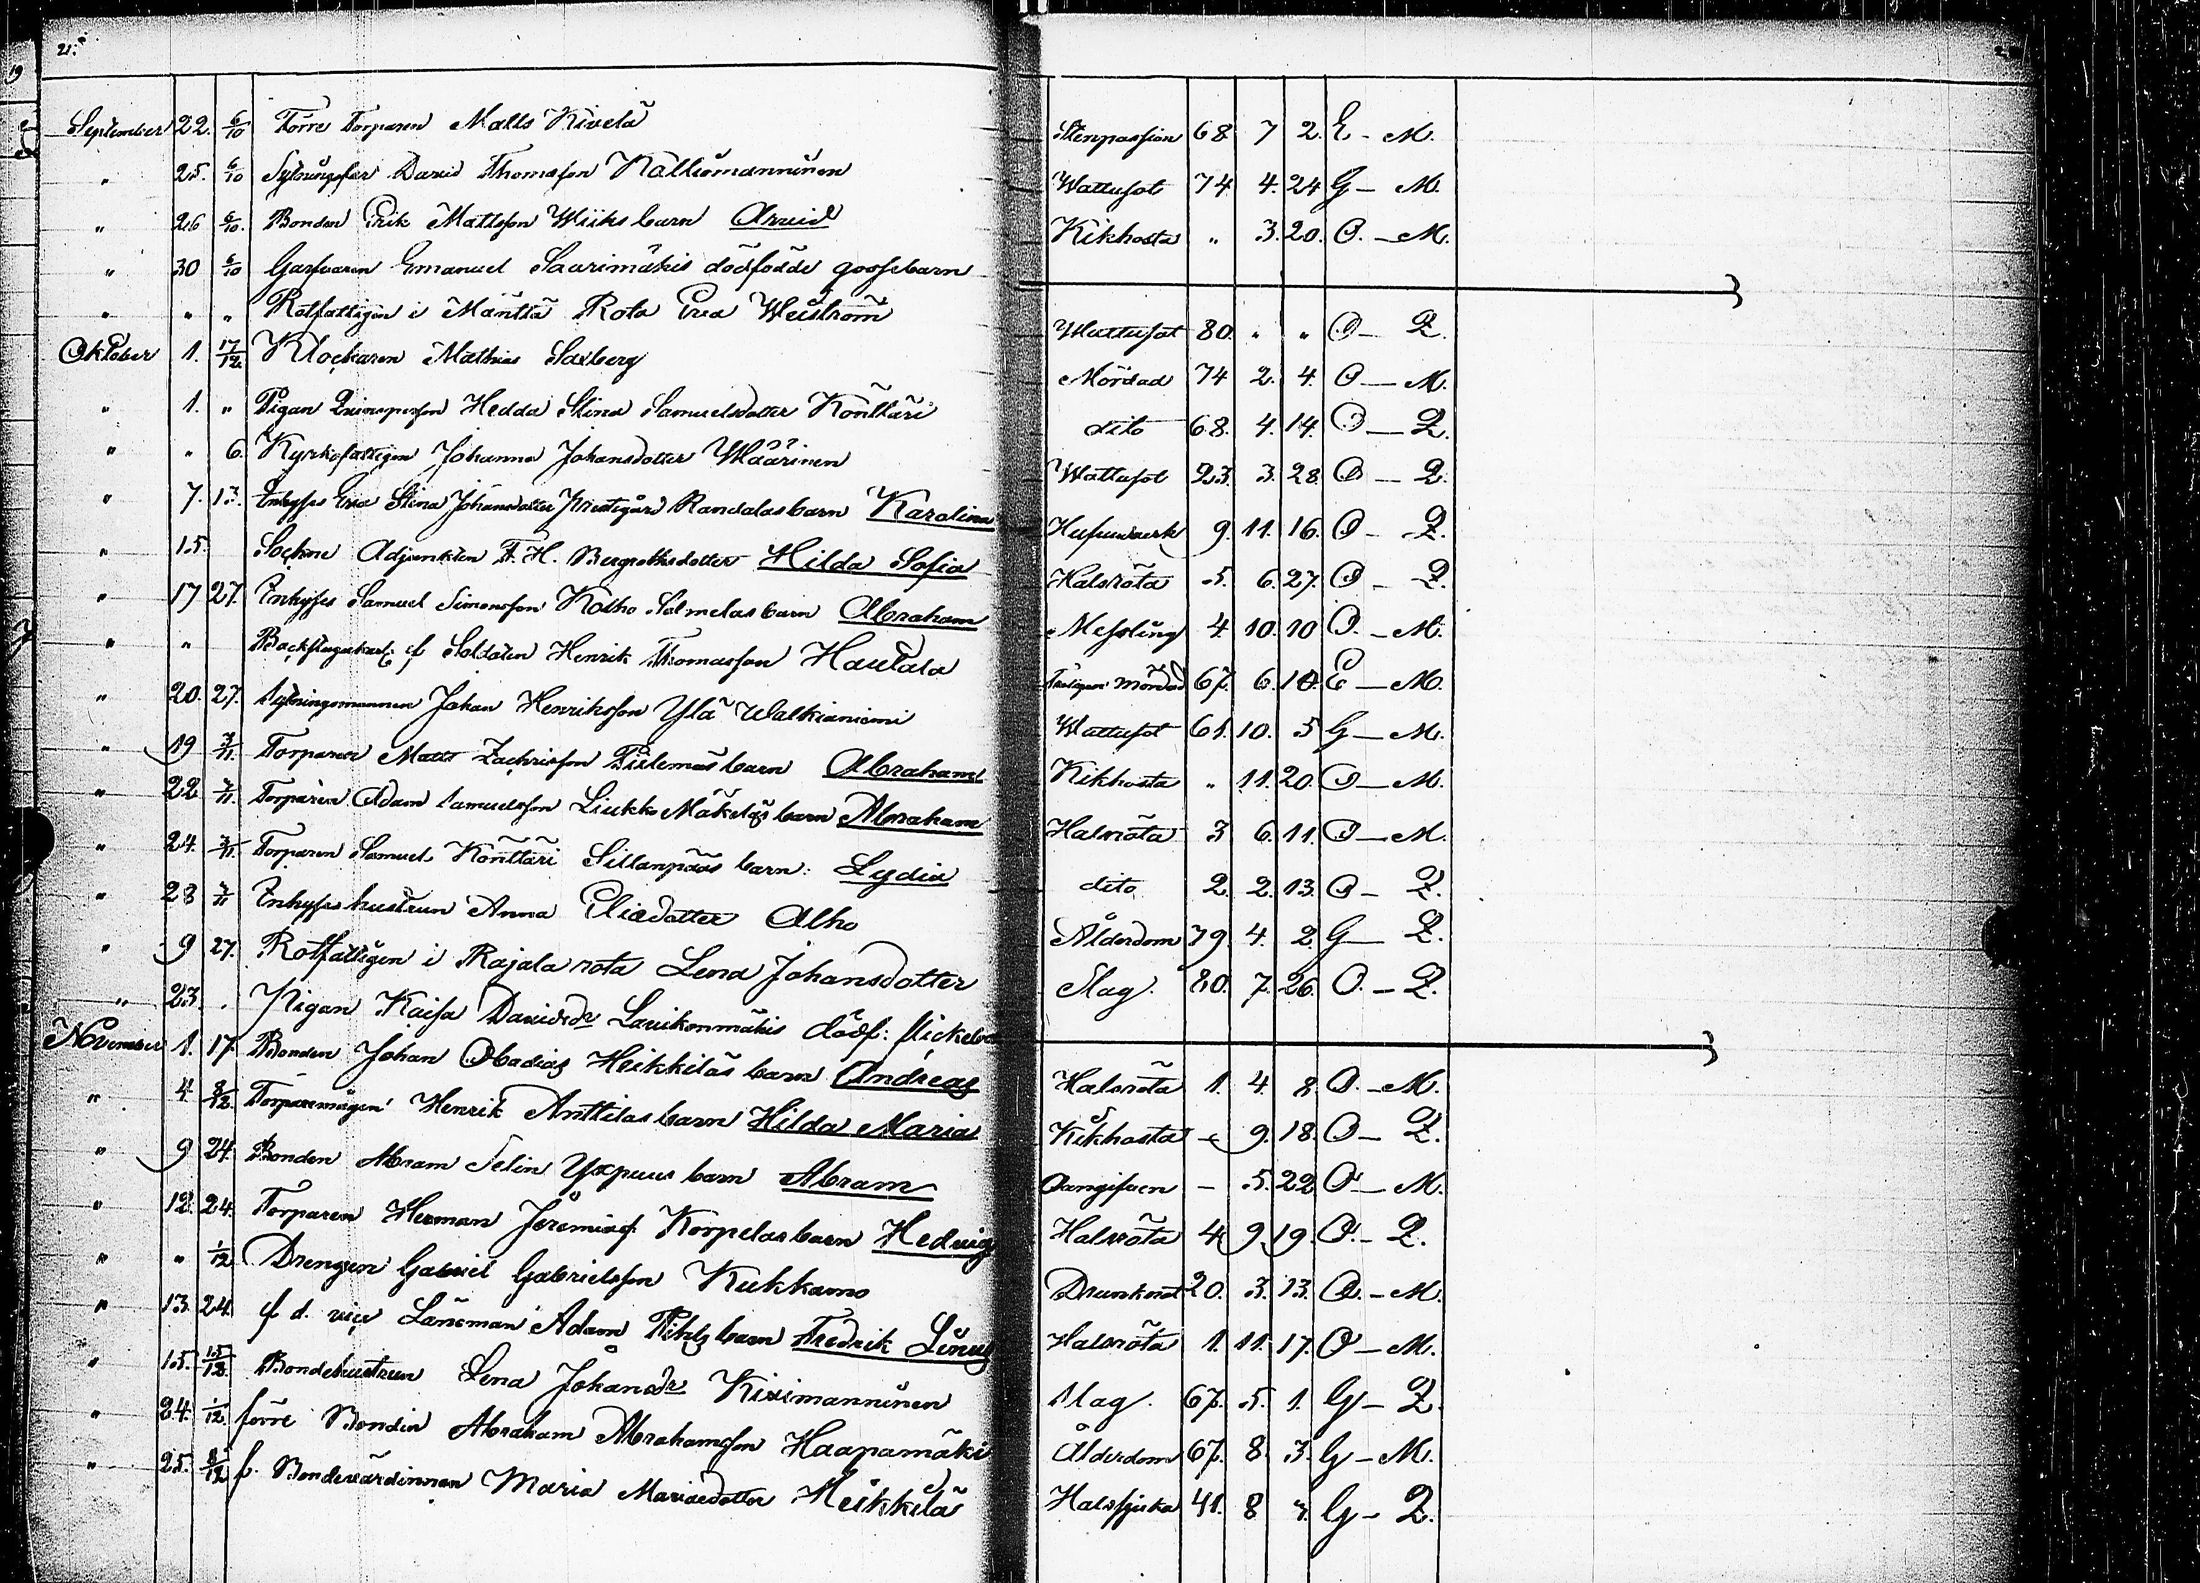 21.
September 22. 6/10 Förre Torparen Matts Kivelä Stenpassion 68 7 2. E - M.
" 25. 6/10 Sytningsfar David Thomasson Kalliomanninen Wattusot 74 4. 24 G - M.
" 26 6/10. Bonden Erik Mattsson Wiiks barn Arvid Kikhosta " 3. 20. O. - M.
" 30 6/10 Garfvaren Emanuel Saarimäkis dödfödde gossebarn
" " " Rotfattigen i Mänttä Rota Eva Weiström Wattusot 80. " " O - Q.
Oktober 1. 17/12. Klockaren Mathias Saxberg Mördad 74 2. 4. O - M.
" 1. " Pigan Hedda Stina Samuelsdotter Könttäri dito 68. 4. 14. O - Q.
" " 6. Kyrkofattigen Johanna Johansdotter Määrinen Wattusot 23. 3. 28. O - Q.
" 7. 13. Inhyses Eva Stina Johansdotter Prestgård Randalas barn Karolina Hufvudverk 9. 11. 16. O - Q.
" 15. Sockne Adjunkten F. H. Bergrothsdotter Hilda Sofia Halsröta 5. 6. 27. O - Q.
" 17 27. Inhyses Samuel Simonsson Kotho Salmelas barn Abraham Messling 4 10. 10 O. - M.
" " Backstugukarl f Soldaten Henrik Thomasson Hautala Troligen Mördad 67. 6. 10. E - M.
" 20. 27. Sytningsmannen Johan Henriksson Ylä Walkianiemi Wattusot 61. 10. 5 G - M.
" 19 3/11. Torparen Matts Zachrisson Piilemäs barn Abraham Kikhosta " 11. 20. O - M.
" 22 3/11. Torparen Adam Samuelsson Liukko Mäkeläs barn Abraham Halsröta 3 6. 11. O - M.
" 24. 3/11. Torparen Samuel Könttäri Sillanpääs barn: Lydia dito 2. 2. 13. O - Q.
" 28 3/11 Inhyses hustrun Anna Eliedotter Alho Ålderdom 79. 4. 2 G - Q.
" 9 27. Rotfattigen i Rajala rota Lena Johansdotter Slag. 80. 7. 26. O. - Q.
" 23. " Pigan Kaisa Davidsdr Lauikonmäkis dödf: flickebarn
November 1. 17. Bonden Johan Obadias Heikkiläs barn Andreas Halsröta 1. 4. 8. O. - M.
" 4. 8/12. Torparemågen Henrik Anttilas barn Hilda Maria Kikhosta - 9. 18. O - Q.
" 9 24. Bonden Abram Selin Yxpuus barn Abram Oangifven - 5. 22. O - M.
" 12. 24. Torparen Herman Jeremiass. Korpelas barn Hedvig Halsröta 4 9. 19. O. - Q.
" " 1/12 Drengen Gabriel Gabrielsson Kukkamo Drunknat 20. 3. 13. O. - M.
" 13. 24. f d. vice Länsman Adam Pihls barn Fredrik Linus Halsröta 1. 11. 17. O - M.
" 15. 15/12. Bondehustrun Lena Johansdr Kiximanninen Slag. 67. 5. 1. G - Q.
" 24. 1/12. förre Bonden Abraham Abrahamsson Haapamäki Ålderdom 67. 8. 3. G - M.
" 25. 8/12 f. Bondevärdinnan Maria Mariaedotter Heikkilä Halssjuka 41. 8 7. G - Q.